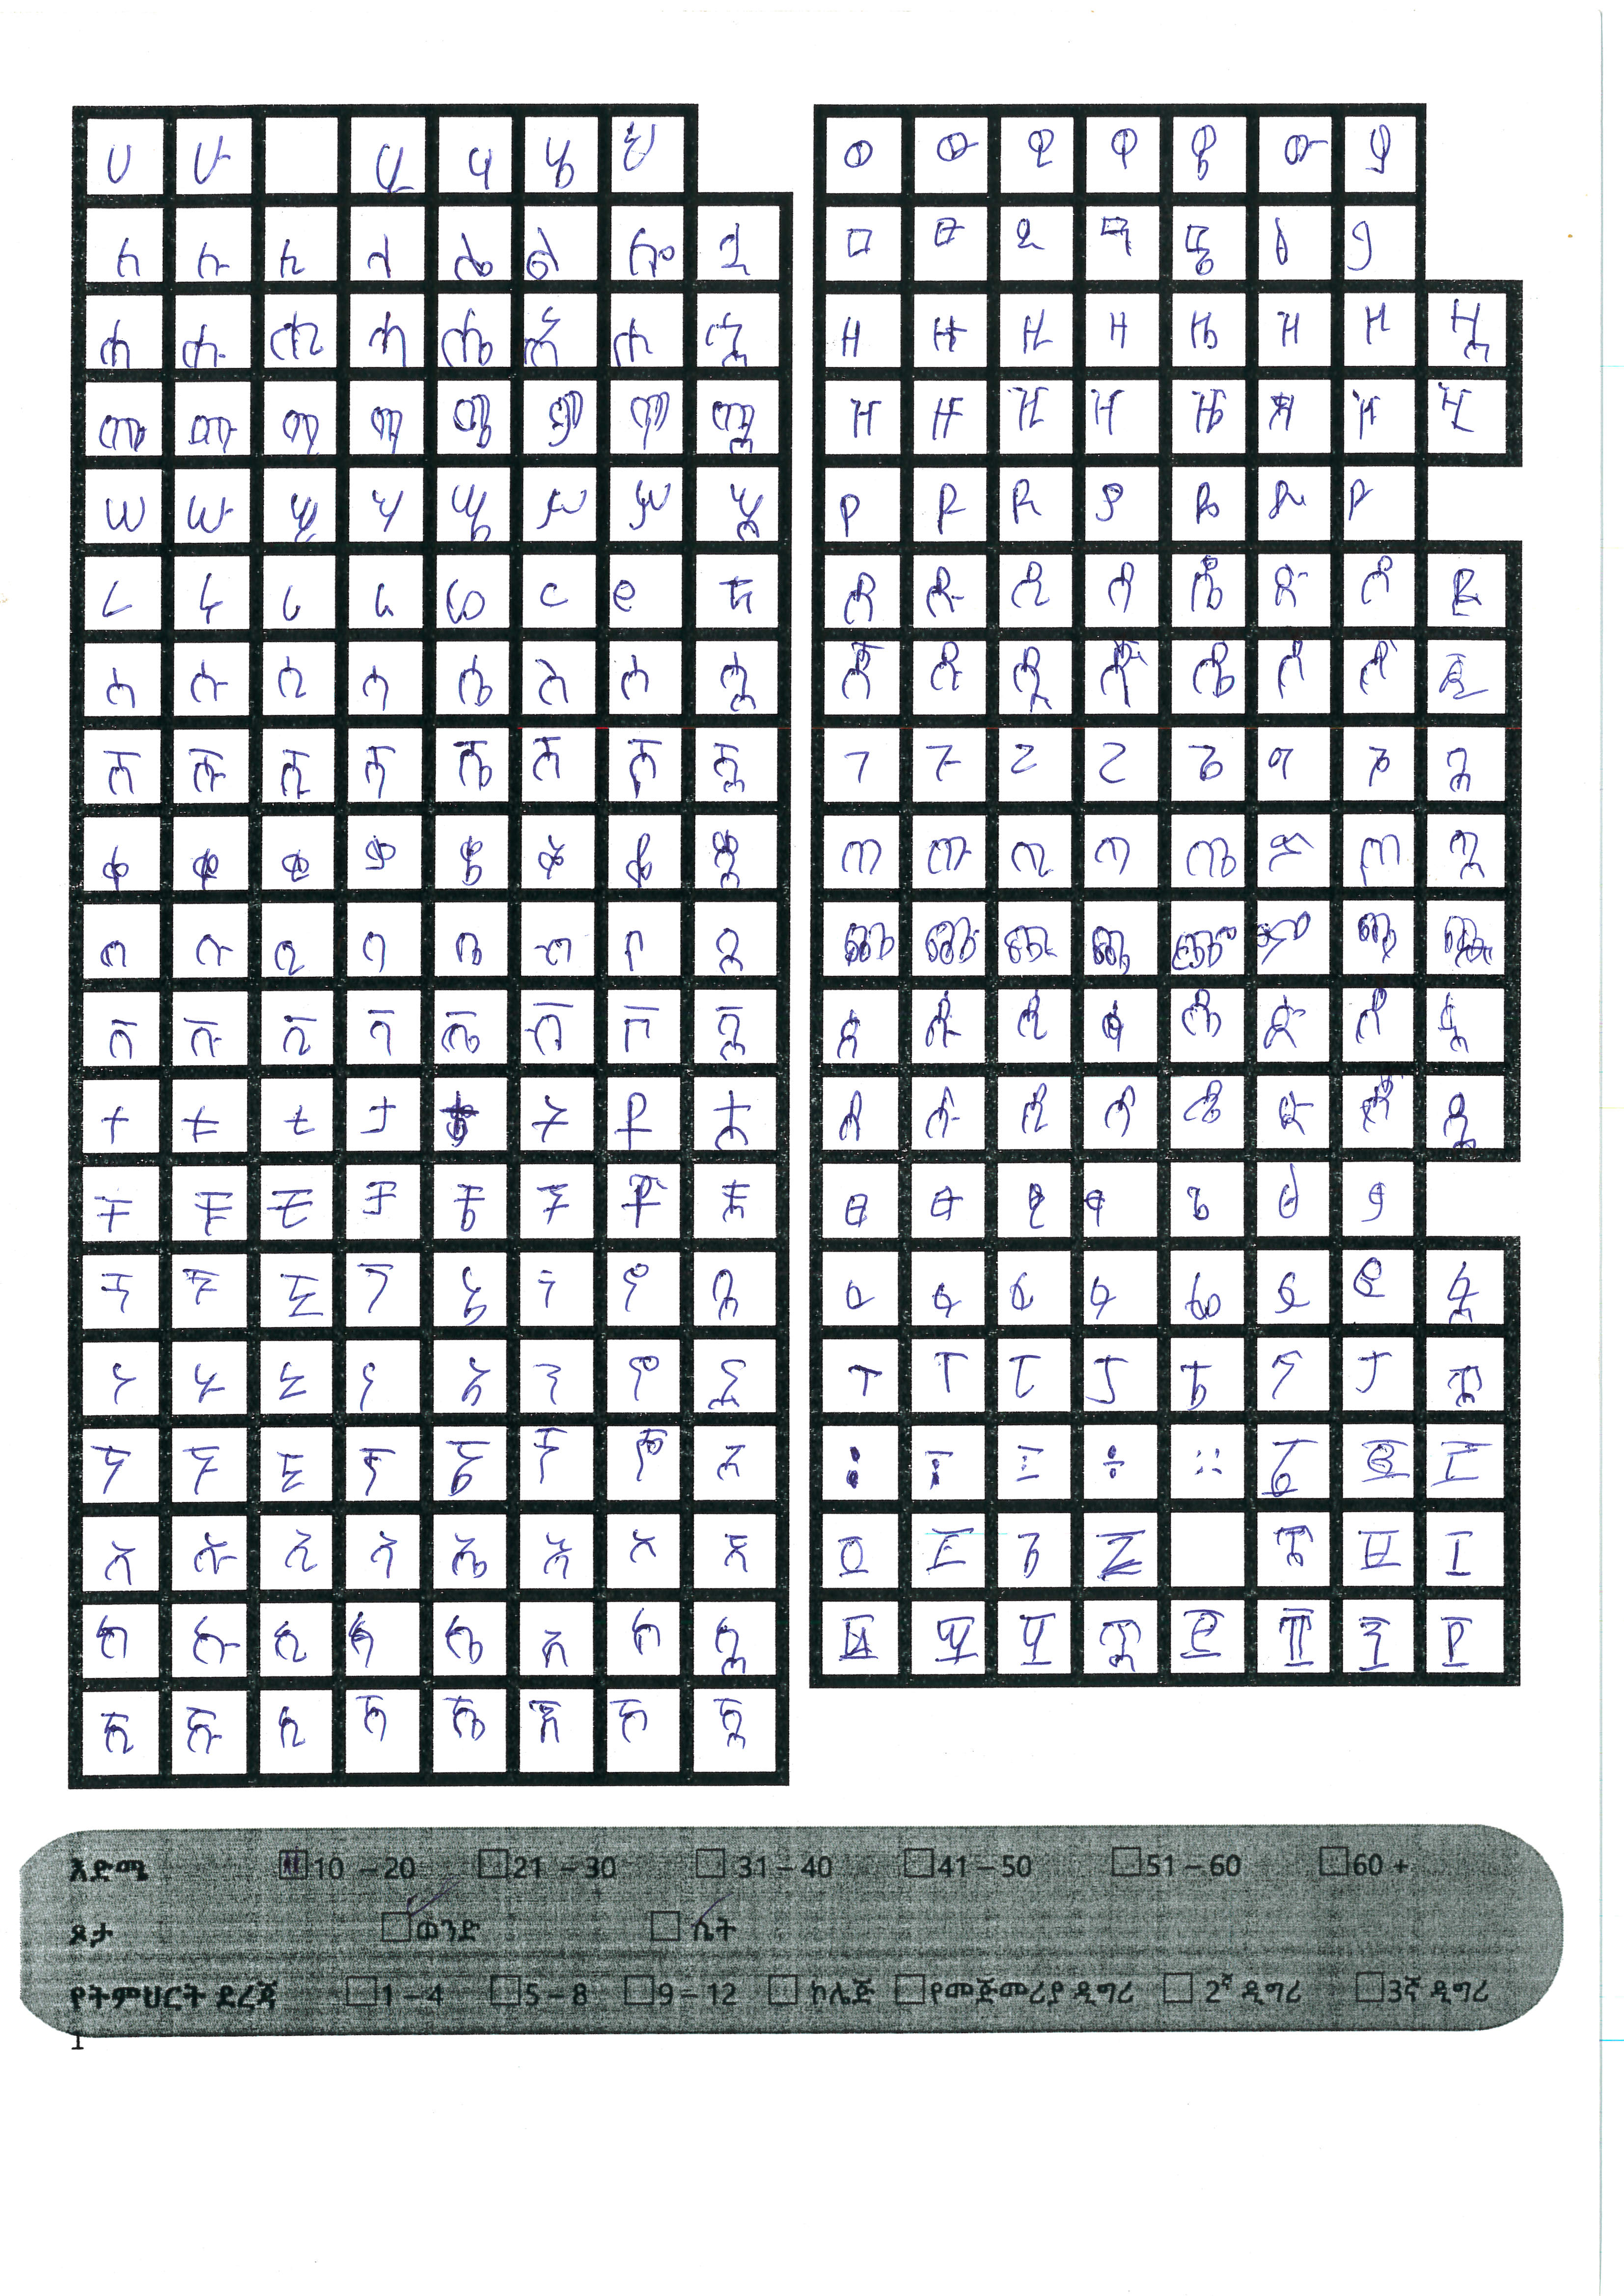 ሀ ሁ ሂ ሃ ሄ ህ
ለ ሉ ሊ ላ ሌ ል ሎ ሏ
ሐ ሑ ሒ ሓ ሔ ሕ ሖ ሗ
መ ሙ ሚ ማ ሜ ም ሞ ሟ
ሠ ሡ ሢ ሣ ሤ ሥ ሦ ሧ
ረ ሩ ሪ ራ ሬ ር ሮ
ሰ ሱ ሲ ሳ ሴ ስ ሶ ሷ
ሸ ሹ ሺ ሻ ሼ ሽ ሾ ሿ
ቀ ቁ ቂ ቃ ቄ ቅ ቆ ቋ
በ ቡ ቢ ባ ቤ ብ ቦ ቧ
ቨ ቩ ቪ ቫ ቬ ቭ ቮ ቯ
ተ ቱ ቲ ታ ቴ ት ቶ ቷ
ቸ ቹ ቺ ቻ ቼ ች ቾ ቿ
ነ ኑ ኒ ና ኔ ን ኖ
ኘ ኙ ኚ ኛ ኜ ኝ ኞ ኟ
አ ኡ ኢ ኣ ኤ እ ኦ ኧ
ከ ኩ ኪ ካ ኬ ክ ኮ ኳ
ዐ ዑ ዒ ዓ ዔ ዕ ዖ
ዘ ዙ ዚ ዛ ዜ ዝ ዞ ዟ
ዠ ዡ ዢ ዣ ዤ ዥ ዦ ዧ
የ ዩ ዪ ያ ዬ ይ ዮ
ደ ዱ ዲ ዳ ዴ ድ ዶ ዷ
ጀ ጁ ጂ ጃ ጄ ጅ ጆ ጇ
ገ ጉ ጊ ጋ ጌ ግ ጎ ጓ
ጠ ጡ ጢ ጣ ጤ ጥ ጦ ጧ
ጨ ጩ ጪ ጫ ጬ ጭ ጮ ጯ
ጰ ጱ ጲ ጳ ጴ ጵ ጶ ጷ
ጸ ጹ ጺ ጻ ጼ ጽ ጾ ጿ
ፀ ፁ ፂ ፃ ፄ ፅ ፆ
ፈ ፉ ፊ ፋ ፌ ፍ ፎ ፏ
ፐ ፑ ፒ ፓ ፔ ፕ ፖ ፗ
እድሜ 10 – 20 21 – 30 31 – 40 41 – 50 51 – 60 60 +
ጾታ ወንድ ሴት
የትምህርት ደረጃ 1 – 4 5 – 8 9 – 12 ኮሌጅ የመጅመሪያ ዲግሪ 2ኛ ዲግሪ 3ኛ ዲግሪ
1